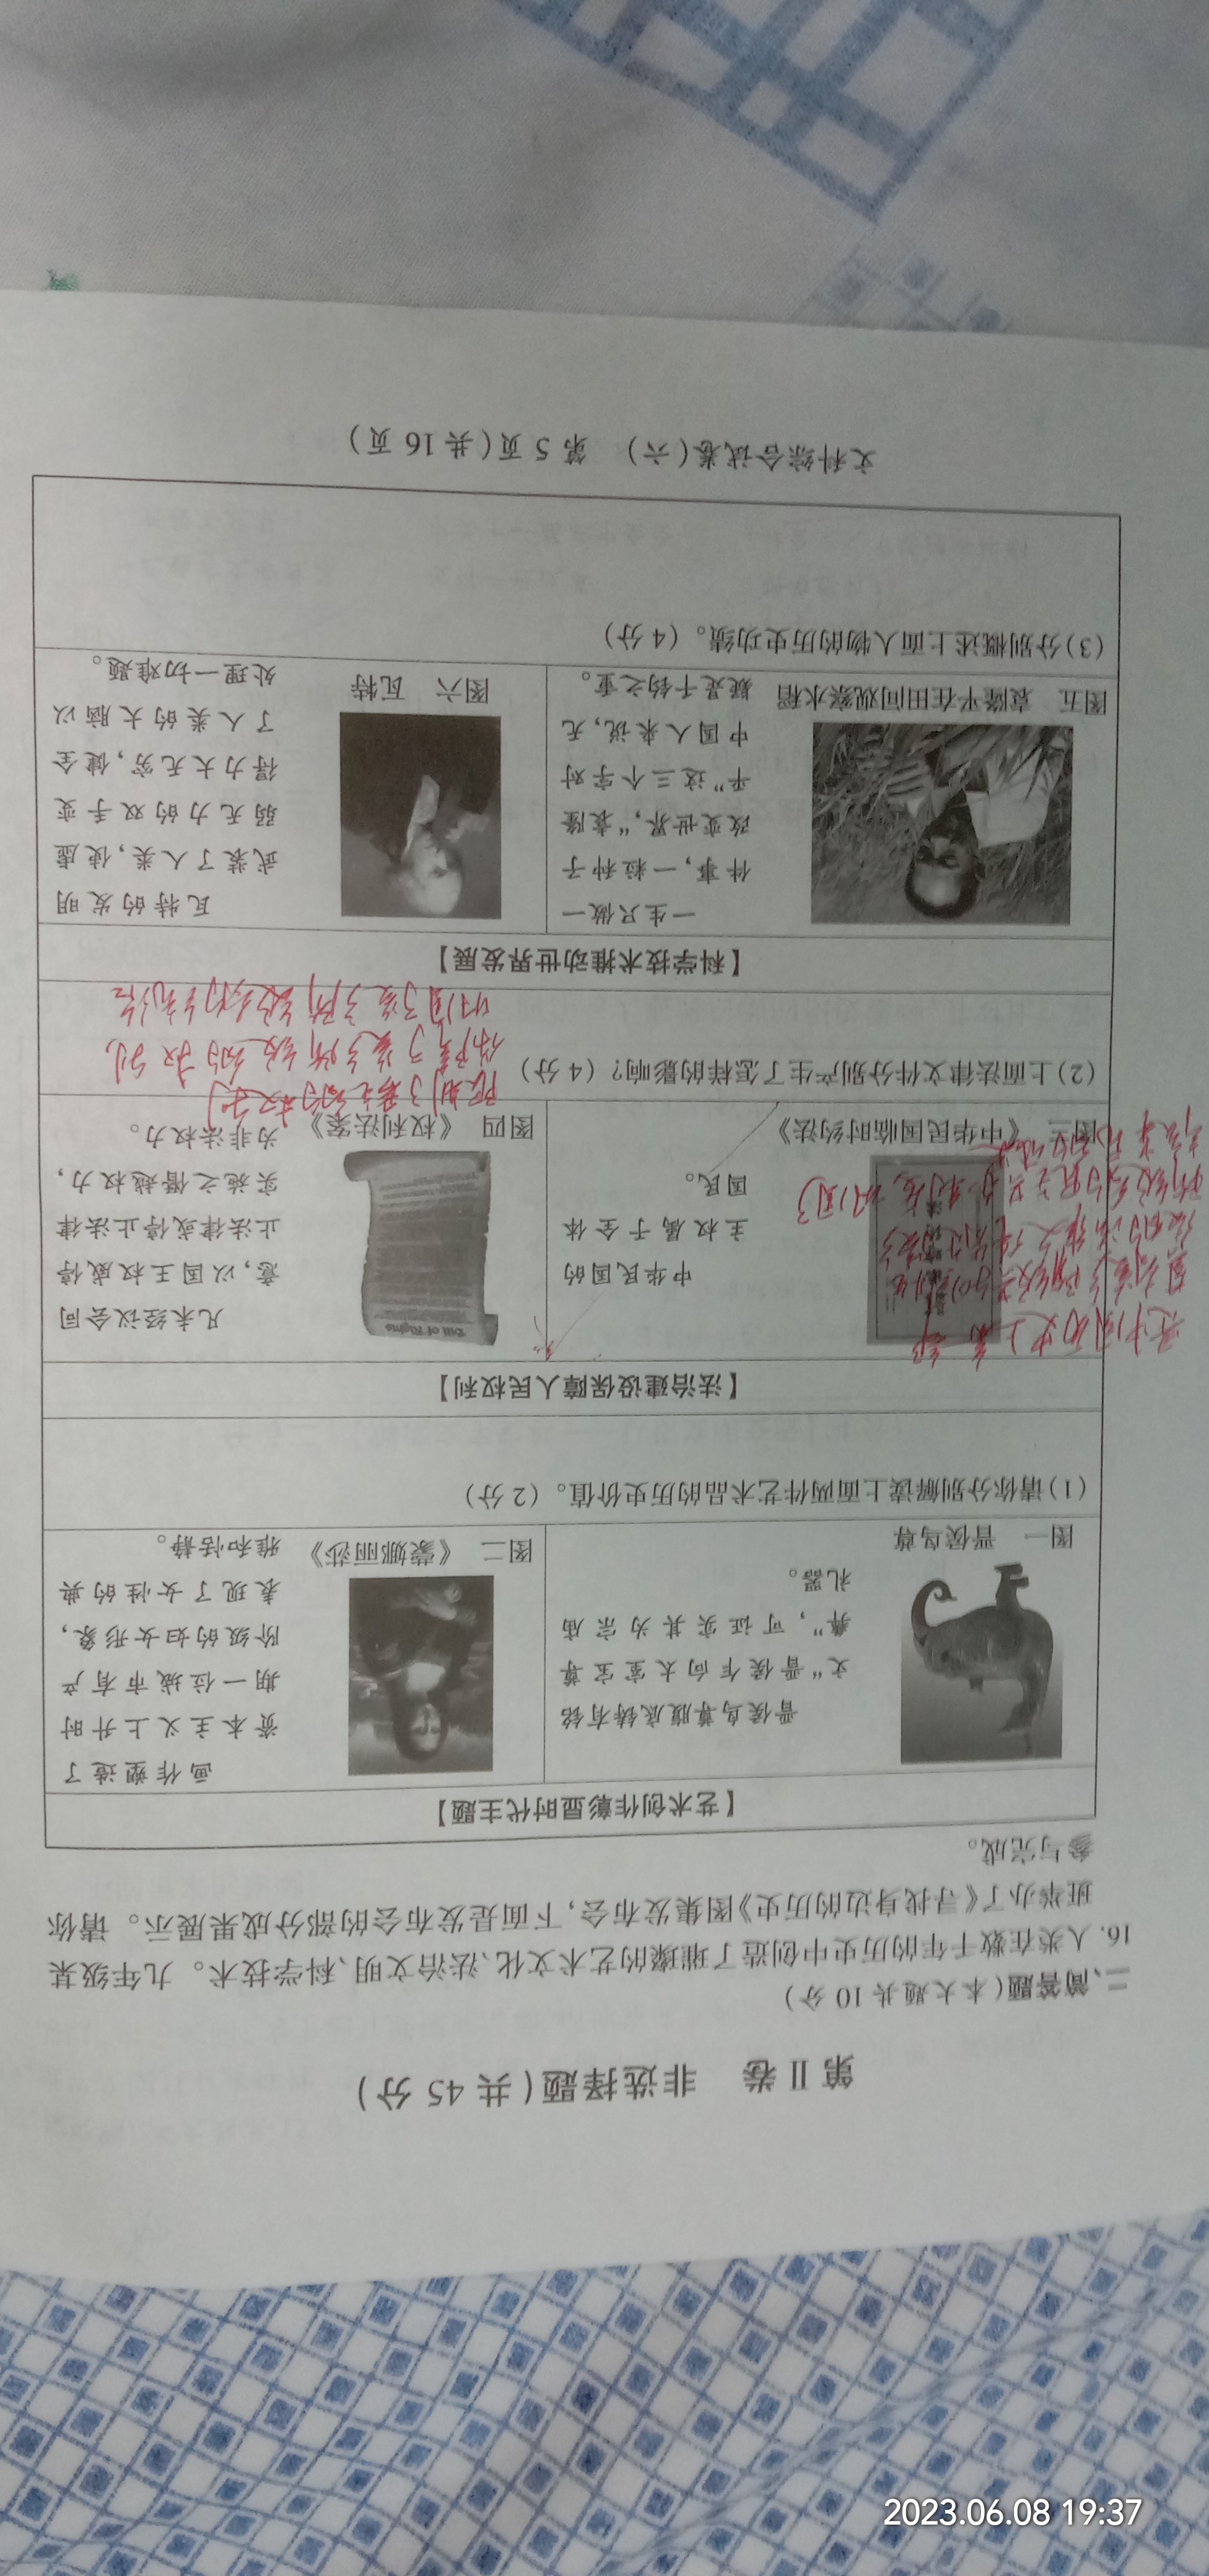 第Ⅱ卷 非选择题(共 45 分)
二、简答题(本大题共 10 分)
16. 人类在数千年的历史中创造了璀璨的艺术文化、法治文明、科学技术。九年级某
班举办了《寻找身边的历史》图集发布会,下面是发布会的部分成果展示。请你
参与完成。
【艺术创作彰显时代主题】
晋侯鸟尊腹底铸有铭
文“晋侯乍向太室宝尊
彝”,可证实其为宗庙
礼器。
图一 晋侯鸟尊
画作塑造了
资本主义上升时
期一位城市有产
阶级的妇女形象,
表现了女性的典
雅和恬静。
图二 《蒙娜丽莎》
(1)请你分别解读上面两件艺术品的历史价值。(2 分)
【法治建设保障人民权利】
中华民国的
主权属于全体
国民。
图三 《中华民国临时约法》
是中国历史上第一部
Bill of Rights
凡未经议会同
意,以国王权威停
止法律或停止法律
实施之僭越权力,
为非法权力。
图四 《权利法案》
(2)上面法律文件分别产生了怎样的影响?(4 分)
限制了君主的权利
保障了资产阶级的权利
巩固了资产阶级的统治
【科学技术推动世界发展】
一生只做一
件事,一粒种子
改变世界,“袁隆
平”这三个字对
中国人来说,无
疑是千钧之重。
图五 袁隆平在田间观察水稻
瓦特的发明
武装了人类,使虚
弱无力的双手变
得力大无穷,健全
了人类的大脑以
处理一切难题。
图六 瓦特
(3)分别概述上面人物的历史功绩。(4 分)
文科综合试卷(六) 第 5 页(共 16 页)
2023.06.08 19:37